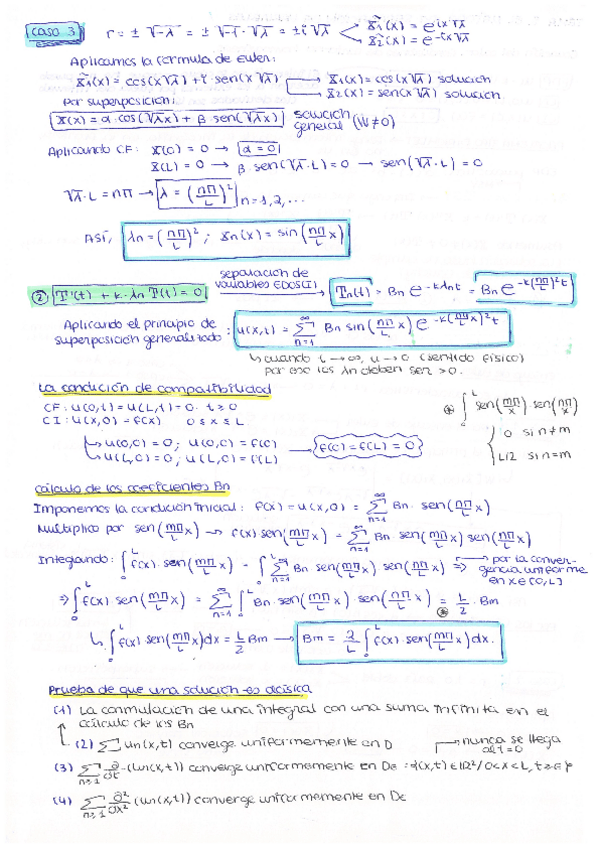 caso 3 r = ± √-λ = ± √-1 · √λ = ± i √λ < X̃₁(x) = e^{ix√λ}
X̃₂(x) = e^{-ix√λ}
Aplicamos la formula de euler:
X̃₁(x) = cos(x√λ) + i · sen(x√λ) → X₁(x) = cos(x√λ) solución
X₂(x) = sen(x√λ) solución
Por superposición:
X(x) = α · cos(√λx) + β · sen(√λx) solución general (W≠0)
Aplicando CF: X(0) = 0 → α = 0
X(L) = 0 → β · sen(√λ · L) = 0 → sen(√λ · L) = 0
√λ · L = nπ → λ = (nπ/L)² n = 1, 2, ...
Así, λn = (nπ/L)² ; Xn(x) = sin(nπ/L x)
② T'(t) + k · λn T(t) = 0 separación de variables EDOS(I) → Tn(t) = Bn e^{-kλnt} = Bn e^{-k(nπ/L)²t}
Aplicando el principio de superposición generalizado: u(x,t) = ∑_{n=1}^{∞} Bn sin(nπ/L x) e^{-k(nπ/L)²t}
↳ cuando t → ∞, u → 0 (sentido físico)
por eso los λn deben ser > 0.
La condición de compatibilidad
CF: u(0,t) = u(L,t) = 0 · t ≥ 0
CI: u(x,0) = f(x) 0 ≤ x ≤ L
↳ u(0,0) = 0 ; u(0,0) = f(0)
↳ u(L,0) = 0 ; u(L,0) = f(L) → f(0) = f(L) = 0
⊛ ∫₀^L sen(mπ/x) sen(nπ/x)
0 si n≠m
L/2 si n=m
Cálculo de los coeficientes Bn
Imponemos la condición inicial: f(x) = u(x,0) = ∑_{n=1}^{∞} Bn · sen(nπ/L x)
Multiplico por sen(mπ/L x) → f(x) sen(mπ/L x) = ∑_{n=1}^{∞} Bn · sen(mπ/L x) sen(nπ/L x)
Integrando: ∫₀^L f(x) · sen(mπ/L x) = ∫₀^L ∑_{n=1}^{∞} Bn sen(mπ/L x) sen(nπ/L x) ⇒ por la convergencia uniforme en x∈[0,L]
⇒ ∫₀^L f(x) sen(mπ/L x) = ∑_{n=1}^{∞} ∫₀^L Bn · sen(mπ/L x) · sen(nπ/L x) =⊛ L/2 · Bm
↳ ∫₀^L f(x) · sen(mπ/L x) dx = L/2 Bm → Bm = 2/L ∫₀^L f(x) · sen(mπ/L x) dx.
Prueba de que una solución es clásica
(1) La conmutación de una integral con una suma infinita en el
cálculo de los Bn
(2) ∑ un(x,t) converge uniformemente en D
nunca se llega al t=0
(3) ∑_{n≥1} ∂/∂t (un(x,t)) converge uniformemente en Dε = {(x,t) ∈ ℝ² / 0<x<L, t≥ε}
(4) ∑_{n≥1} ∂²/∂x² (un(x,t)) converge uniformemente en Dε